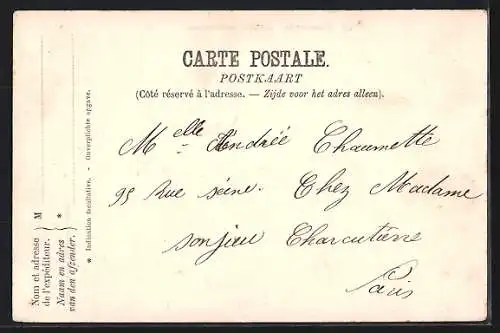 CARTE POSTALE.
POSTKAART
(Côté réservé à l'adresse. — Zijde voor het adres alleen).
Melle Andrée Chaumette
95 Rue seine. Chez Madame
Charcutière
Paris
* Indication facultative. - Onverplichte opgave.
Nom et adresse
de l'expéditeur.
Naam en adres
van den afzender.
} M
} *